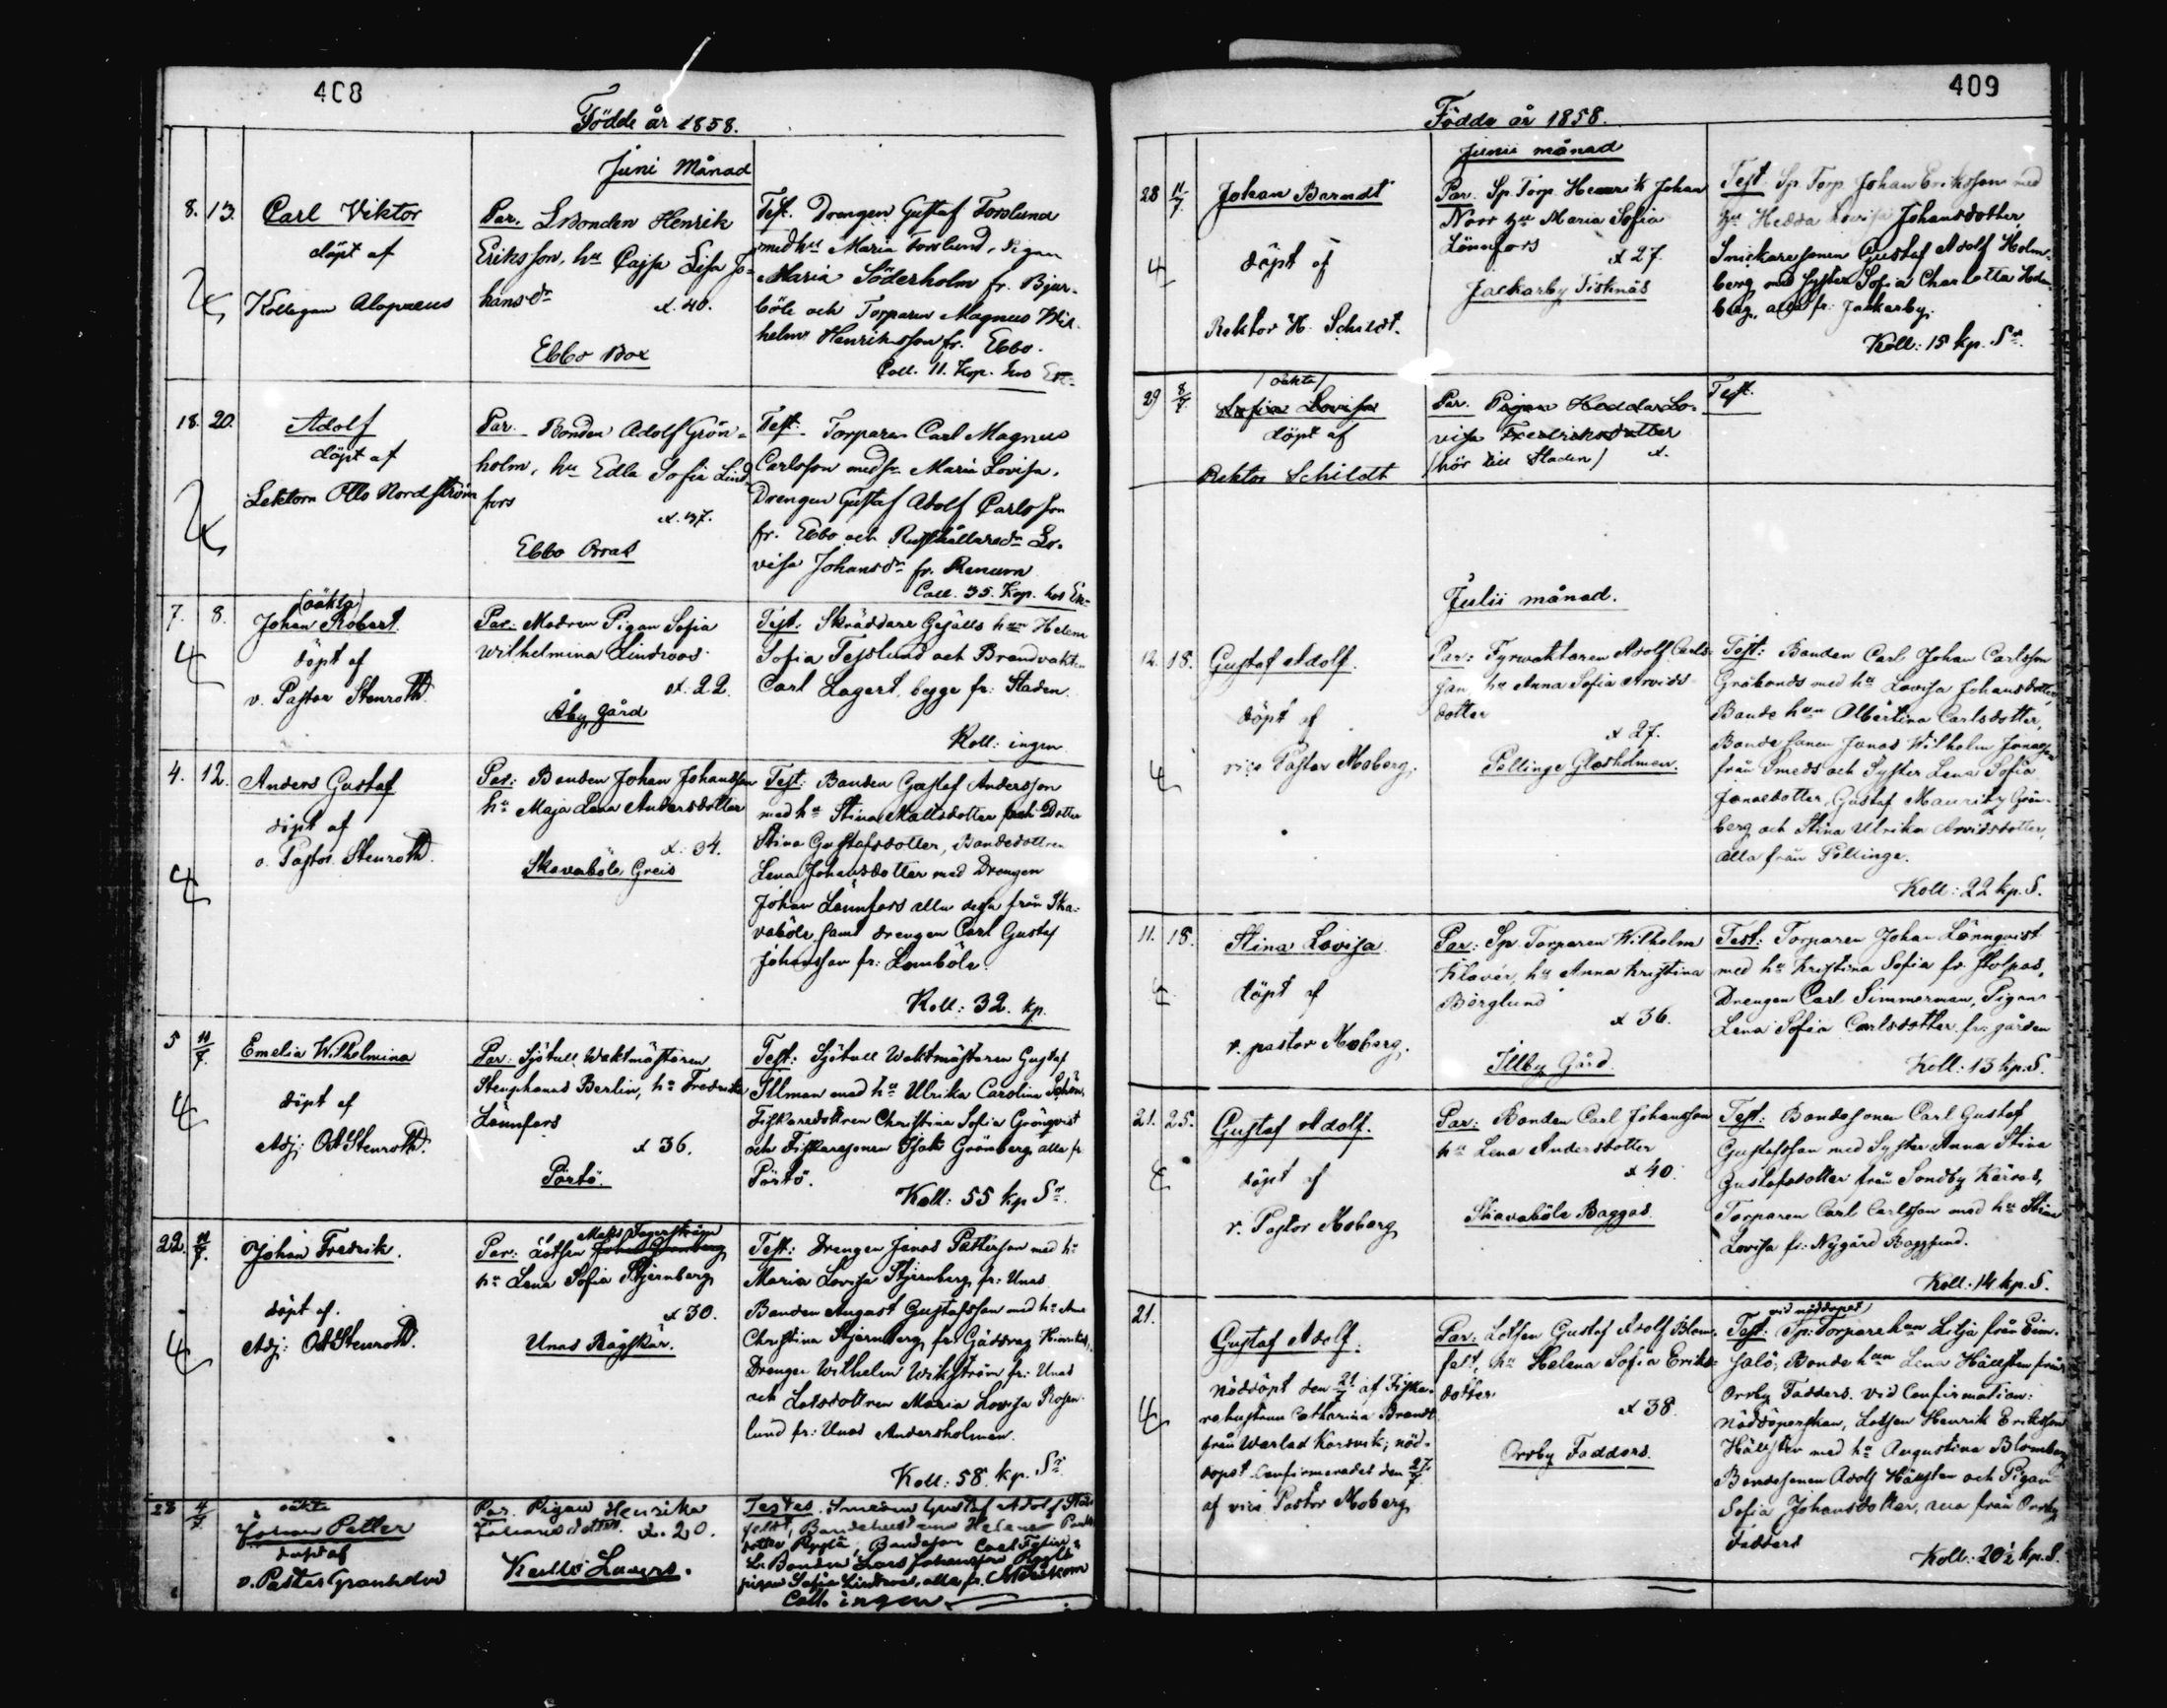 408
Födde år 1858.
Juni Månad
8. 13. Carl Viktor
döpt af
Kollegan Alopaeus
Par. LBonden Henrik
Eriksson, hu Cajsa Lisa Jo-
hansdr
æt. 40.
Ebbo Box
Test. Drengen Gustaf Forslund
med hu Maria Forslund, Pigan
Maria Söderholm fr. Bjur-
böle och Torparen Magnus Wil-
helm Henriksson fr. Ebbo.
Coll. 11. Kop. hos
18. 20. Adolf
döpt af
Lektorn Otto Nordström
Par. Bonden Adolf Grön-
holm, hu Edla Sofia Lind-
fors
æt. 37.
Ebbo Orras
Test: Torparen Carl Magnus
Carlsson med hu Maria Lovisa,
Drengen Gustaf Adolf Carlsson
fr. Ebbo och Rusthållaredr Lo-
visa Johansdr fr. Renum
Coll. 35. Kop. hos
7. 8. (oäkta)
Johan Robert.
döpt af
v. Pastor Stenroth.
Par: Modren Pigan Sofia
Wilhelmina Lindroos
æt. 22.
Åby gård
Test: Skräddare Gesälls hun Helena
Sofia Feslund och Brandvakten
Carl Lagert, begge fr: Staden.
Koll: ingen
4. 12. Anders Gustaf
döpt af
v. Pastor Stenroth.
Par: Bonden Johan Johansson
hu Maja Lena Andersdotter
æt. 34.
Skavaböle Greis
Test: Bonden Gustaf Andersson
med hu Stina Mattsdotter och Dotter
Stina Gustafsdotter, Bondedottren
Lena Johansdotter med Drengen
Johan Lönnfors alla dessa från Ska-
vaböle, samt drengen Carl Gustaf
Johansson fr: Lomböle.
Koll: 32. kp.
5 11/7. Emelia Wilhelmina
döpt af
Adj: Ott Stenroth.
Par: Sjötull Waktmästaren
Stenphanus Berlin, hu Fredrika
Lönnfors
æt 36.
Pörtö.
Test: Sjötull Waktmästaren Gustaf
Illman med hu Ulrika Carolina
Fiskaredottren Christina Sofia Grönqvist
och Fiskaresonen Isak Grönberg alla fr
Pörtö.
Koll: 55 kp Sr.
22. 11/7. Johan Fredrik.
döpt af.
Adj: Ott Stenroth.
Matts Fagerström
Par: Lotsen Johan Grönberg
hu Lena Sofia Stjernberg
æt 30.
Unas Rågskär.
Test: Drengen Jonas Pettersson med hu
Maria Lovisa Stjernberg fr: Unas
Bonden August Gustafsson med hu
Christina Stjernberg fr: Gäddrag
Drengen Wilhelm Wikström fr: Unas
och Lotsdottren Maria Lovisa Rosen-
lund fr: Unas Andersholmen.
Koll: 58. kp. Sr
23 4/7. oäkta
Johan Petter
döpt af
v. Pastor Granholm
Par. Pigan Henrika
Johansdotter. æt. 20.
Kullo Laaers.
Testes. Smeden Gustaf Adolf
Bondehustrun Helena
dotter, Bondeson Carl
Bonden Lars Johansson
pigan Sofia, alla fr.
Coll. ingen
409
Födde år 1858.
Junii månad
28 11/7. Johan Berndt
döpt af
Rektor H. Schildt.
Par. Sp. Torp. Henrik Johan
Norr hu Maria Sofia
Lönnfors
æt 27.
Jackarby Tisknäs
Test. Sp. Torp. Johan Eriksson med
hu Hedda Lovisa Johansdotter,
Snickaresonen Gustaf Adolf Holm-
berg med Syster Sofia Charlotta Holm-
berg, alla fr. Jackarby.
Koll: 15 kp. Sr.
29 8/7. (oäkta)
Sofia Lovisa
döpt af
Rektor Schildt
Par. Pigan Hedda Lo-
visa Fredriksdotter
(hör till Staden) æt.
Test.
Julii månad.
12. 18. Gustaf Adolf.
döpt af
vice Pastor Moberg.
Par: Fyrvaktaren Adolf Carls-
son hu Anna Sofia Arvids-
dotter
æt 27.
Pellinge Glosholmen.
Test: Bonden Carl Johan Carlsson
Gråkonds med hu Lovisa Johansdotter,
Bonde hun Albertina Carlsdotter,
Bonde sonen Jonas Wilhelm Jonasson
från Smeds och Syster Lena Sofia
Jonasdotter, Gustaf Mauritz Grön-
berg och Stina Ulrika Arvidsdotter,
alla från Pellinge.
Koll: 22 kp. S.
11. 18. Stina Lovisa
döpt af
v. pastor Moberg.
Par: Sp. Torparen Wilhelm
Klavér, hu Anna Kristina
Berglund
æt 36.
Illby Gård.
Test: Torparen Johan Lönnqvist
med hu Kristina Sofia fr. Stolpas,
Drengen Carl Simmerman, Pigan
Lena Sofia Carlsdotter fr: gården
Koll: 13 kp. S.
21. 25. Gustaf Adolf.
döpt af
v. Pastor Moberg
Par: Bonden Carl Johansson
hu Lena Andersdotter
æt 40.
Skavaböle Baggas.
Test: Bondesonen Carl Gustaf
Gustafsson med Syster Anna Stina
Gustafsdotter från Sondby Kärras,
Torparen Carl Carlsson med hu Stina
Lovisa fr: Nygård Baggsund.
Koll: 14 kp. S.
21. Gustaf Adolf.
nöddöpt den 21 af Fiska-
rehustrun Catharina Brandt
från Warlax Korsvik; nöd-
dopet Confirmerades den 27/7
af vice Pastor Moberg
Par: Lotsen Gustaf Adolf Blom-
felt, hu Helena Sofia Eriks-
dotter
æt 38.
Orrby Fadders.
vid nöddopet)
Test: Sp: Torpare hun Lilja från Eim-
salö, Bonde hun Lena Hällsten från
Orrby Fadders. Vid Confirmation:
Nöddöperskan, Lotsen Henrik Eriksson
Hällsten med hu Augustina Blomberg
Bondesonen Adolf Hällsten och Pigan
Sofia Johansdotter, alla från Orrby
Fadders
Koll: 20½ kp. S.